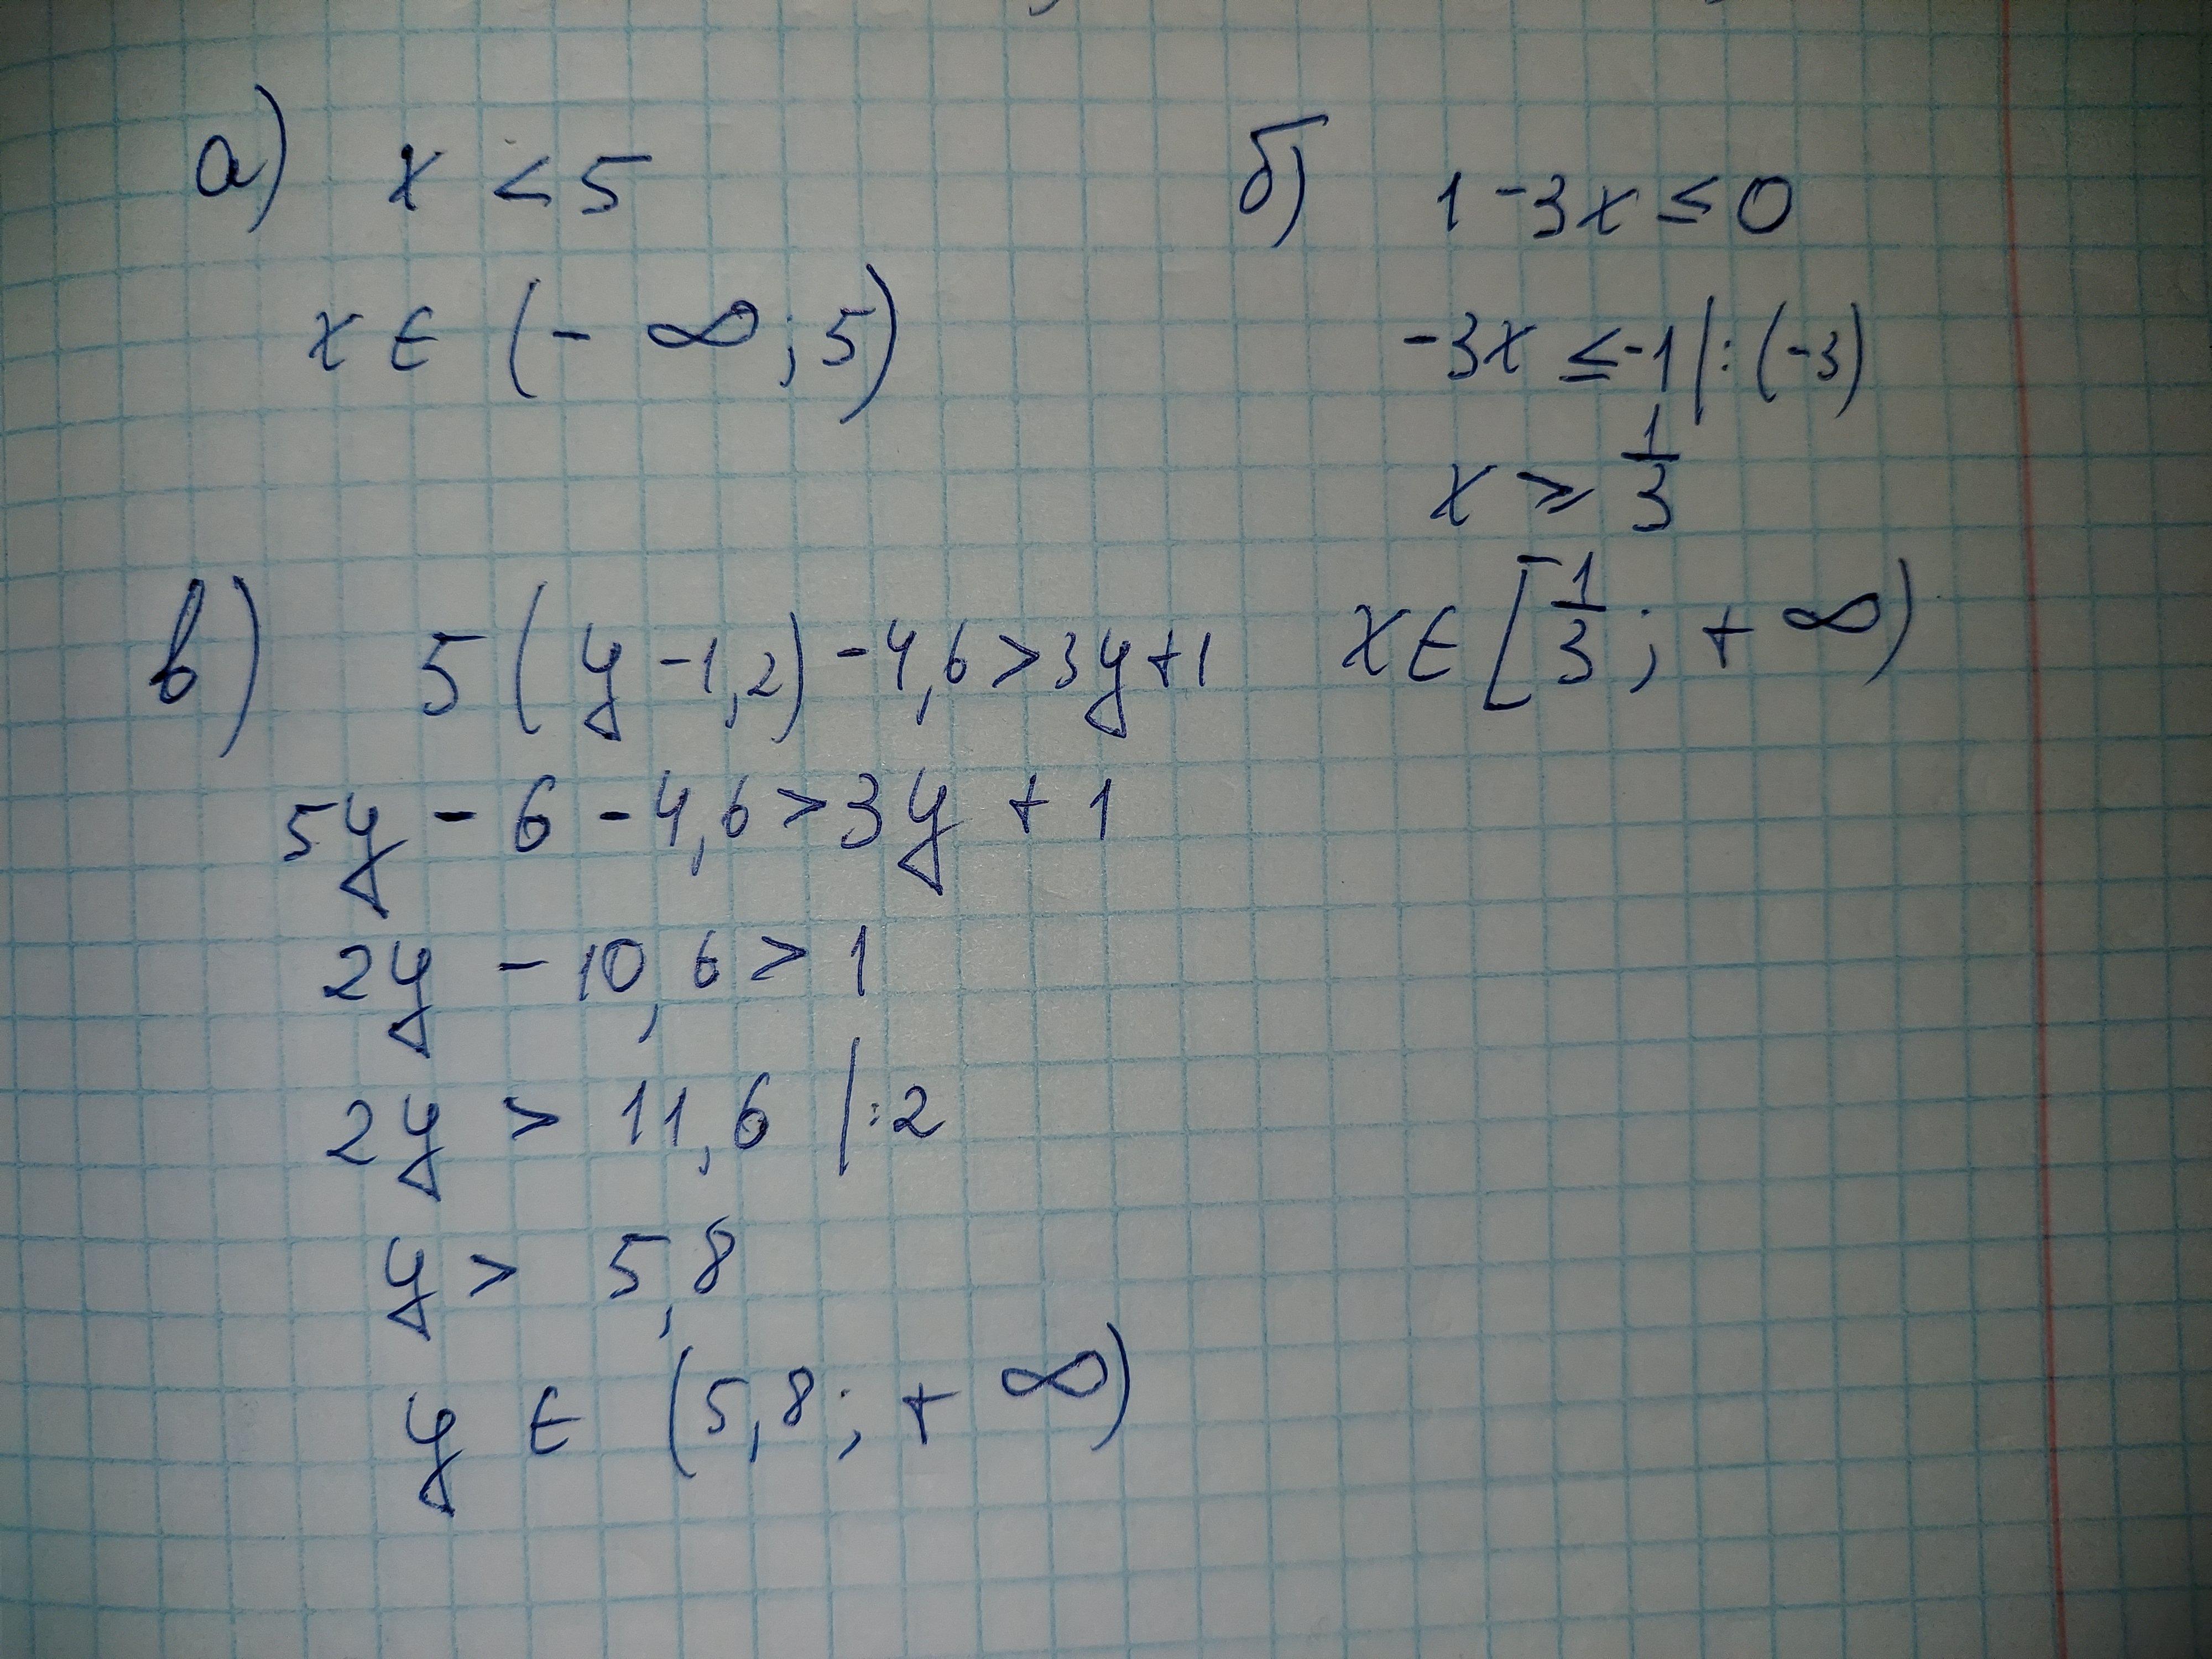 а) x < 5
x ∈ (- ∞; 5)
б) 1 - 3x ≤ 0
-3x ≤ -1 | : (-3)
x ≥ 1/3
x ∈ [1/3; + ∞)
в) 5(y - 1,2) - 4,6 > 3y + 1
5y - 6 - 4,6 > 3y + 1
2y - 10,6 > 1
2y > 11,6 | : 2
y > 5,8
y ∈ (5,8; + ∞)